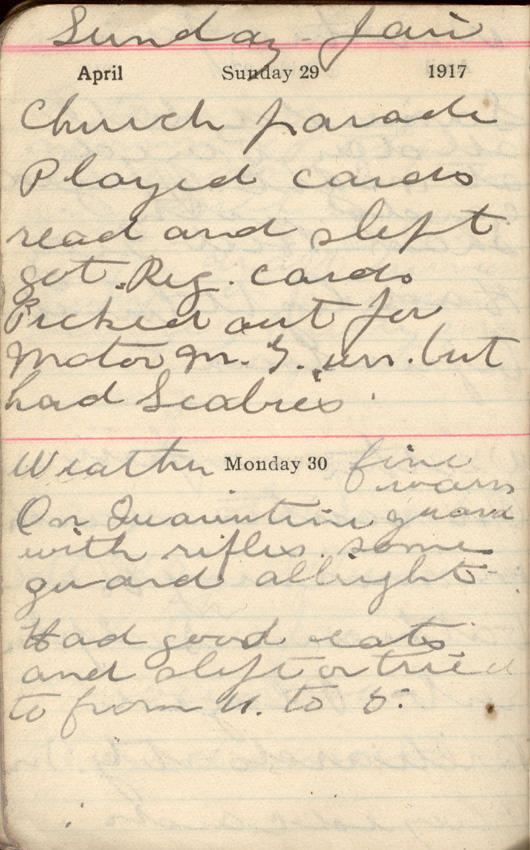 Sunday - Fair
April Sunday 29 1917
Church parade
Played cards
read and slept
got Reg. cards
Picked out for
Motor M. G. un. but
had Scabies.
Weather Monday 30 fine
warm
On Quarintine guard
with rifles. some
guard allright.
Had good eats
and slept or tried
to from 11. to 5.